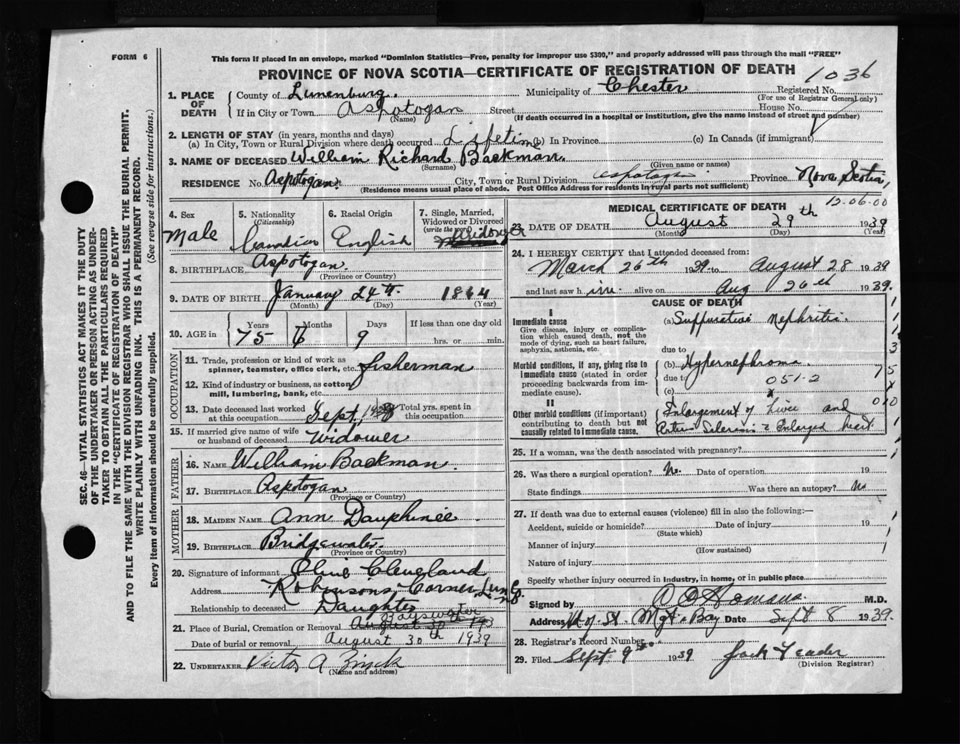 FORM 6
This form if placed in an envelope, marked "Dominion Statistics—Free, penalty for improper use $300," and properly addressed will pass through the mail "FREE"
PROVINCE OF NOVA SCOTIA—CERTIFICATE OF REGISTRATION OF DEATH 1036
SEC. 46—VITAL STATISTICS ACT MAKES IT THE DUTY
OF THE UNDERTAKER OR PERSON ACTING AS UNDER-
TAKER TO OBTAIN ALL THE PARTICULARS REQUIRED
IN THE "CERTIFICATE OF REGISTRATION OF DEATH"
AND TO FILE THE SAME WITH THE DIVISION REGISTRAR WHO SHALL ISSUE THE BURIAL PERMIT.
WRITE PLAINLY WITH UNFADING INK. THIS IS A PERMANENT RECORD.
Every item of information should be carefully supplied. (See reverse side for instructions.)
1. PLACE OF DEATH
County of Lunenburg. Municipality of Chester Registered No.
(For use of Registrar General only)
If in City or Town Aspotogan Street House No.
(Name) (If death occurred in a hospital or institution, give the name instead of street and number)
2. LENGTH OF STAY (in years, months and days)
(a) In City, Town or Rural Division where death occurred Lifetime (b) In Province (c) In Canada (if immigrant)
3. NAME OF DECEASED William Richard Backman.
(Surname) (Given name or names)
RESIDENCE No. Aspotogan. City, Town or Rural Division Aspotogan Province Nova Scotia,
(Residence means usual place of abode. Post Office Address for residents in rural parts not sufficient)
4. Sex Male
5. Nationality (Citizenship) Canadian
6. Racial Origin English
7. Single, Married, Widowed or Divorced (write the word) Widower
8. BIRTHPLACE Aspotogan.
(Province or Country)
9. DATE OF BIRTH January 24th 1864
(Month) (Day) (Year)
10. AGE in Years Months Days If less than one day old
75 6 9 hrs. or min.
OCCUPATION
11. Trade, profession or kind of work as spinner, teamster, office clerk, etc. fisherman
12. Kind of industry or business, as cotton mill, lumbering, bank, etc.
13. Date deceased last worked at this occupation Sept, Total yrs. spent in this occupation
15. If married give name of wife or husband of deceased Widower
FATHER
16. NAME William Backman.
17. BIRTHPLACE Aspotogan
(Province or Country)
MOTHER
18. MAIDEN NAME Ann Dauphinee
19. BIRTHPLACE Bridgewater.
(Province or Country)
20. Signature of informant Cleveland
Address Robinsons Corner, Lun Co.
Relationship to deceased Daughter
21. Place of Burial, Cremation or Removal Bayswater
Date of burial or removal August 30th 1939
22. UNDERTAKER Victor A Zinck
(Name and address)
MEDICAL CERTIFICATE OF DEATH 12.06.00
23. DATE OF DEATH August 29th 1939
(Month) (Day) (Year)
24. I HEREBY CERTIFY that I attended deceased from:
March 26th 1939 to August 28 1939
and last saw h im alive on Aug 26th 1939.
CAUSE OF DEATH
I
Immediate cause
Give disease, injury or complication which caused death, not the mode of dying, such as heart failure, asphyxia, asthenia, etc.
(a) Suppurative Nephritis.
due to
Morbid conditions, if any, giving rise to immediate cause (stated in order proceeding backwards from immediate cause)
(b) Hypernephroma
due to 051-2
(c)
II
Other morbid conditions (if important) contributing to death but not causally related to immediate cause.
Enlargement of Liver and
Arterio Sclerosis & Enlarged heart
25. If a woman, was the death associated with pregnancy?
26. Was there a surgical operation? No. Date of operation 19
State findings Was there an autopsy? No
27. If death was due to external causes (violence) fill in also the following:—
Accident, suicide or homicide? Date of injury 19
(State which)
Manner of injury
(How sustained)
Nature of injury
Specify whether injury occurred in industry, in home, or in public place
Signed by M.D.
Address Bay Date Sept 8 1939.
28. Registrar's Record Number
29. Filed Sept 9th 1939 Jack Yeadon
(Division Registrar)